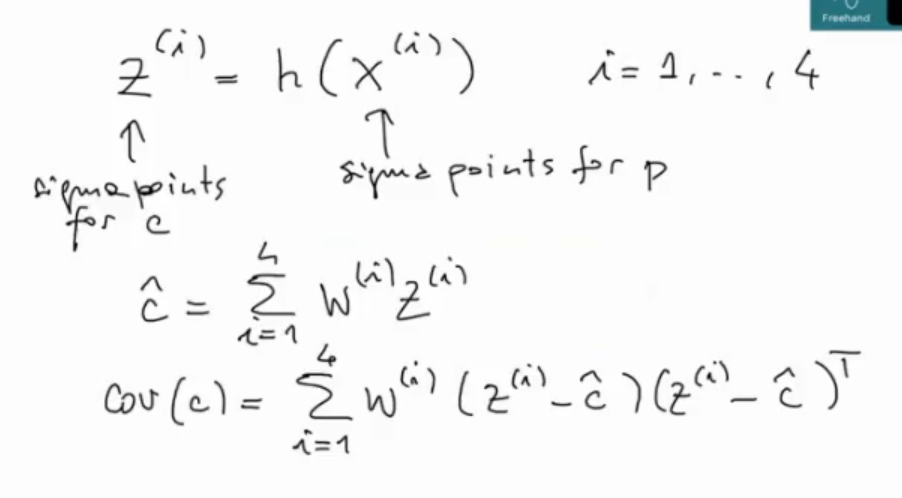 Freehand
z^(i) = h(x^(i))    i = 1, .. , 4
↑ ↑
sigma points for p
sigma points
for c
ĉ = Σ_{i=1}^{4} w^(i) z^(i)
Cov(c) = Σ_{i=1}^{4} w^(i) (z^(i) - ĉ)(z^(i) - ĉ)^T